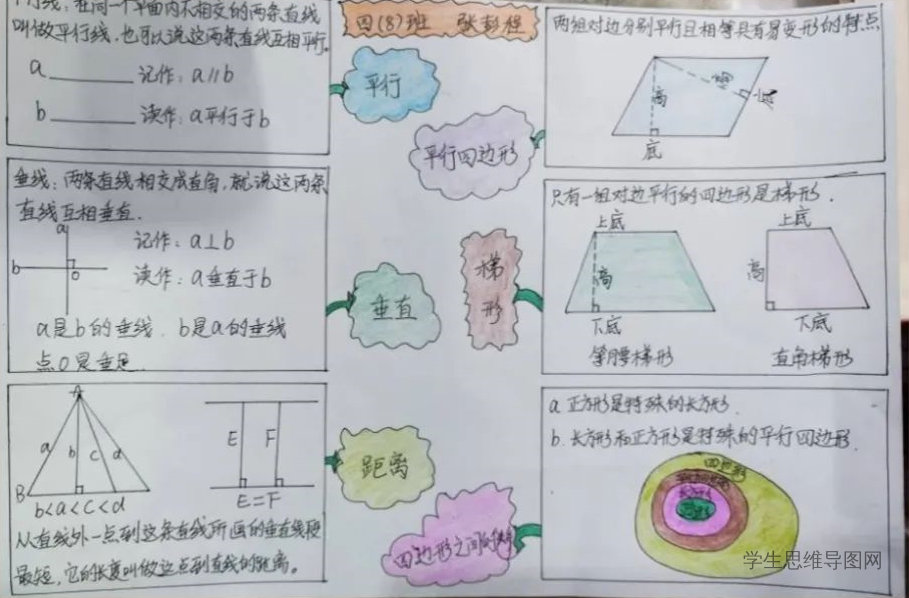 四(8)班 张彭程
在同一个平面内不相交的两条直线
叫做平行线,也可以说这两条直线互相平行。
a 记作:a∥b
b 读作:a平行于b
平行
平行四边形
两组对边分别平行且相等具有易变形的特点
高
高
底
底
垂线:两条直线相交成直角,就说这两条
直线互相垂直.
a
b
O
记作:a⊥b
读作:a垂直于b
a是b的垂线. b是a的垂线
点O是垂足
垂直
梯
形
只有一组对边平行的四边形是梯形.
上底
高
下底
等腰梯形
上底
高
下底
直角梯形
A
a b c d
B
b<a<c<d
E F
E=F
从直线外一点到这条直线所画的垂直线段
最短,它的长度叫做这点到直线的距离。
距离
四边形之间的
a 正方形是特殊的长方形.
b.长方形和正方形是特殊的平行四边形.
四边形
学生思维导图网